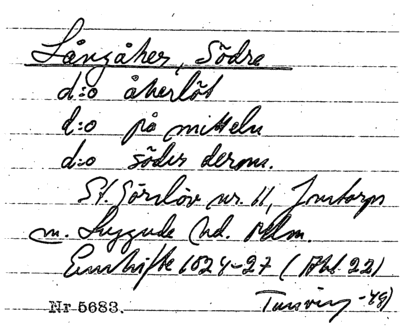 Långåker, Södre
d:o åkerlöt
d:o på mitteln
d:o söder derom.
St. Görslöv nr. 11, Jnstorps
m. Luggude hd. Malm.
Enskifte 1824-27 (Akt. 22)
Nr 5683. Tunving -49)